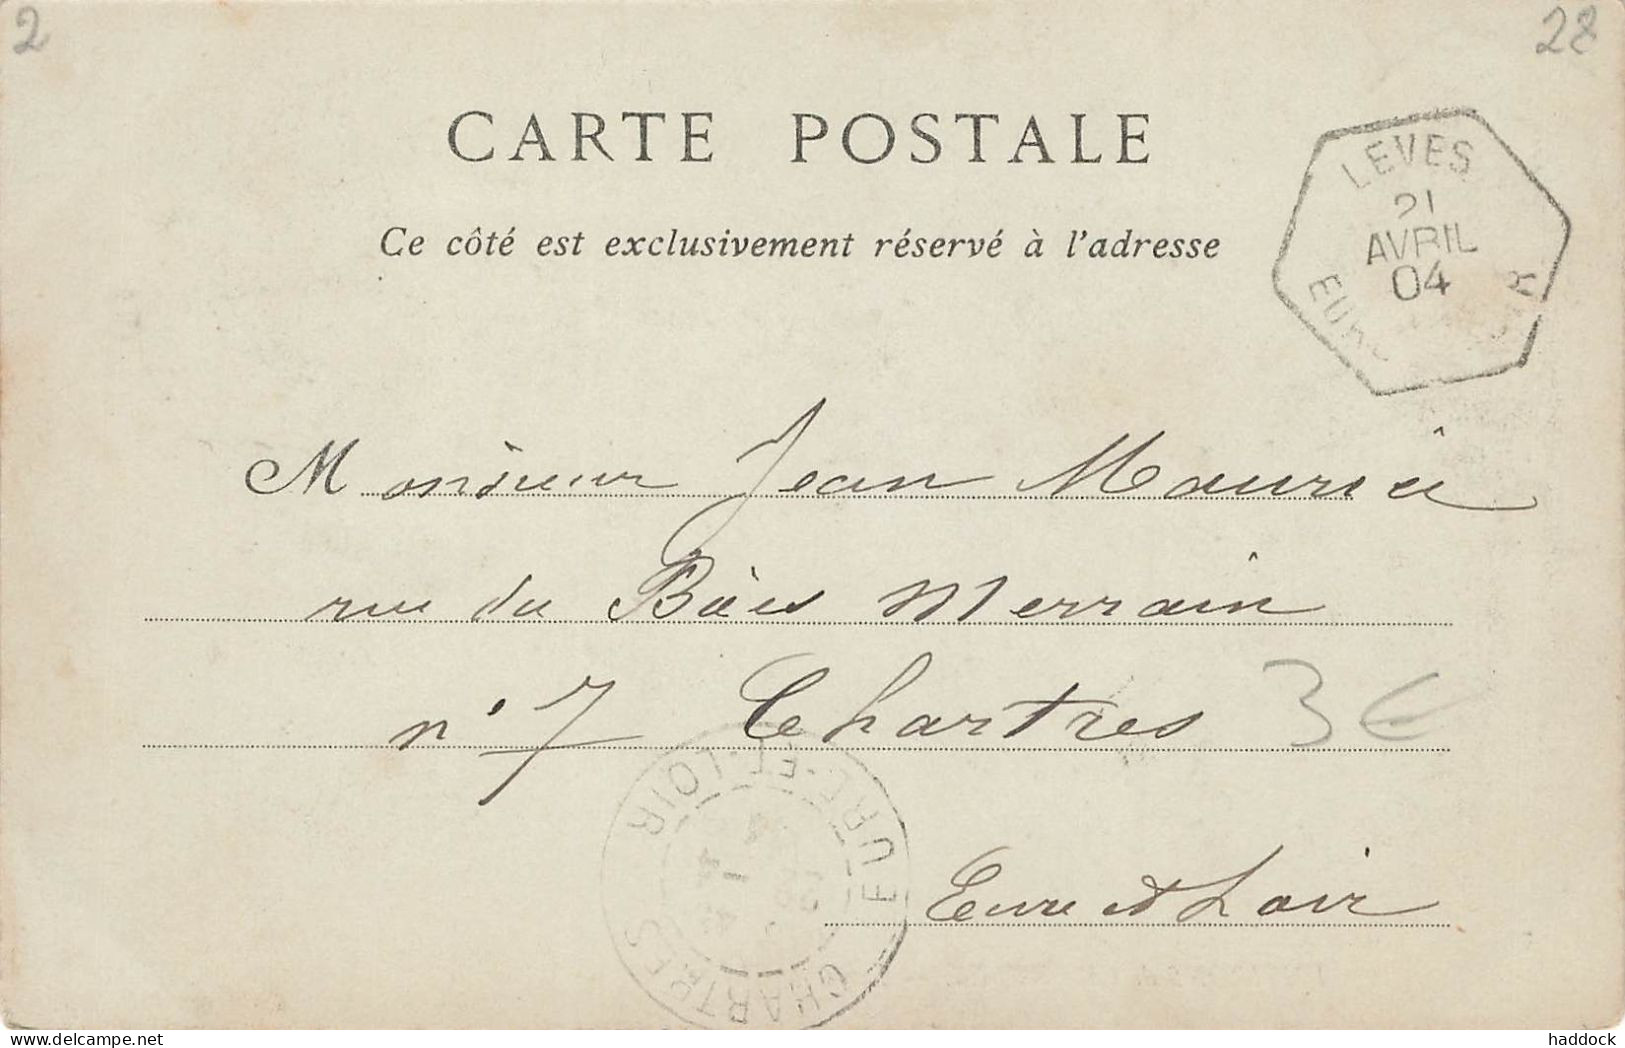 2
28
CARTE POSTALE
LEVES
21
AVRIL
04
Ce côté est exclusivement réservé à l'adresse
Monsieur Jean
rue du Bois Merrain
n° 7 Chartres 3€
CHARTRES
EURE-ET-LOIR
Eure et Loir
delcampe.net
haddock